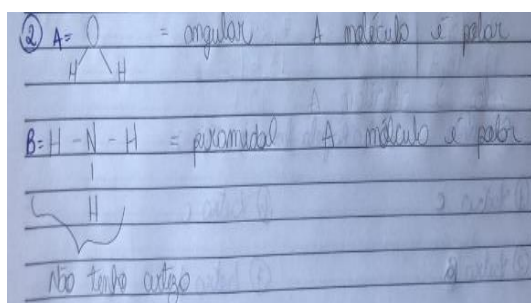 ② A= O = angular A molécula é polar
H H
B= H - N - H = piramidal A molécula é polar
H
Não tenho